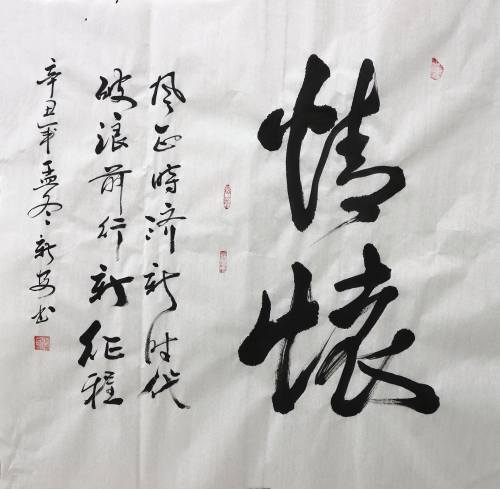 情懷
风正時济新时代
破浪前行新征程
辛丑年孟冬新安书